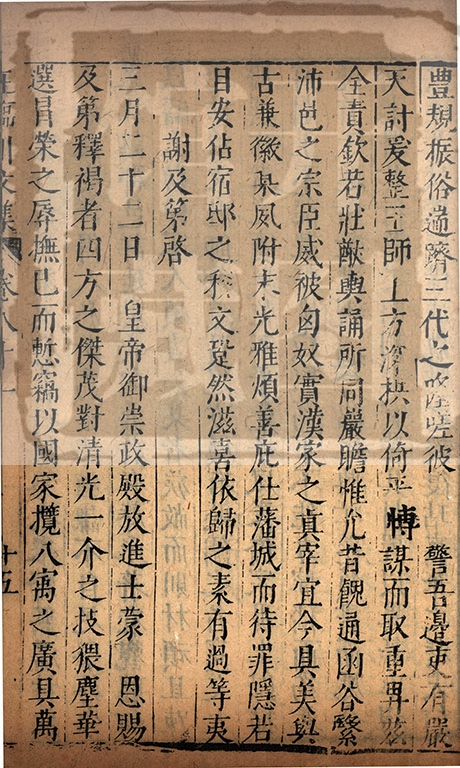 豊規振俗遹躋三代之隆嗟彼 警吾邊吏有嚴
天討爰整王師上方 以倚平 謀而取重
全責欽若壯猷輿誦所同嚴瞻惟允昔餽通函谷繄
沛邑之宗臣威被匈奴實漢家之真宰宜今具美與
古兼徽某夙附末光雅頌善庇仕藩城而待罪隱若
目安佔宿邸之移文跫然滋喜依歸之素有過等夷
謝及第啓
三月二十二日 皇帝御崇政殿放進士蒙 恩賜
及第釋褐者四方之傑茂對清光一介之技猥塵華
選冒榮之辱撫已而慙竊以國家攬八寓之廣具萬
文集 卷八十一 十五